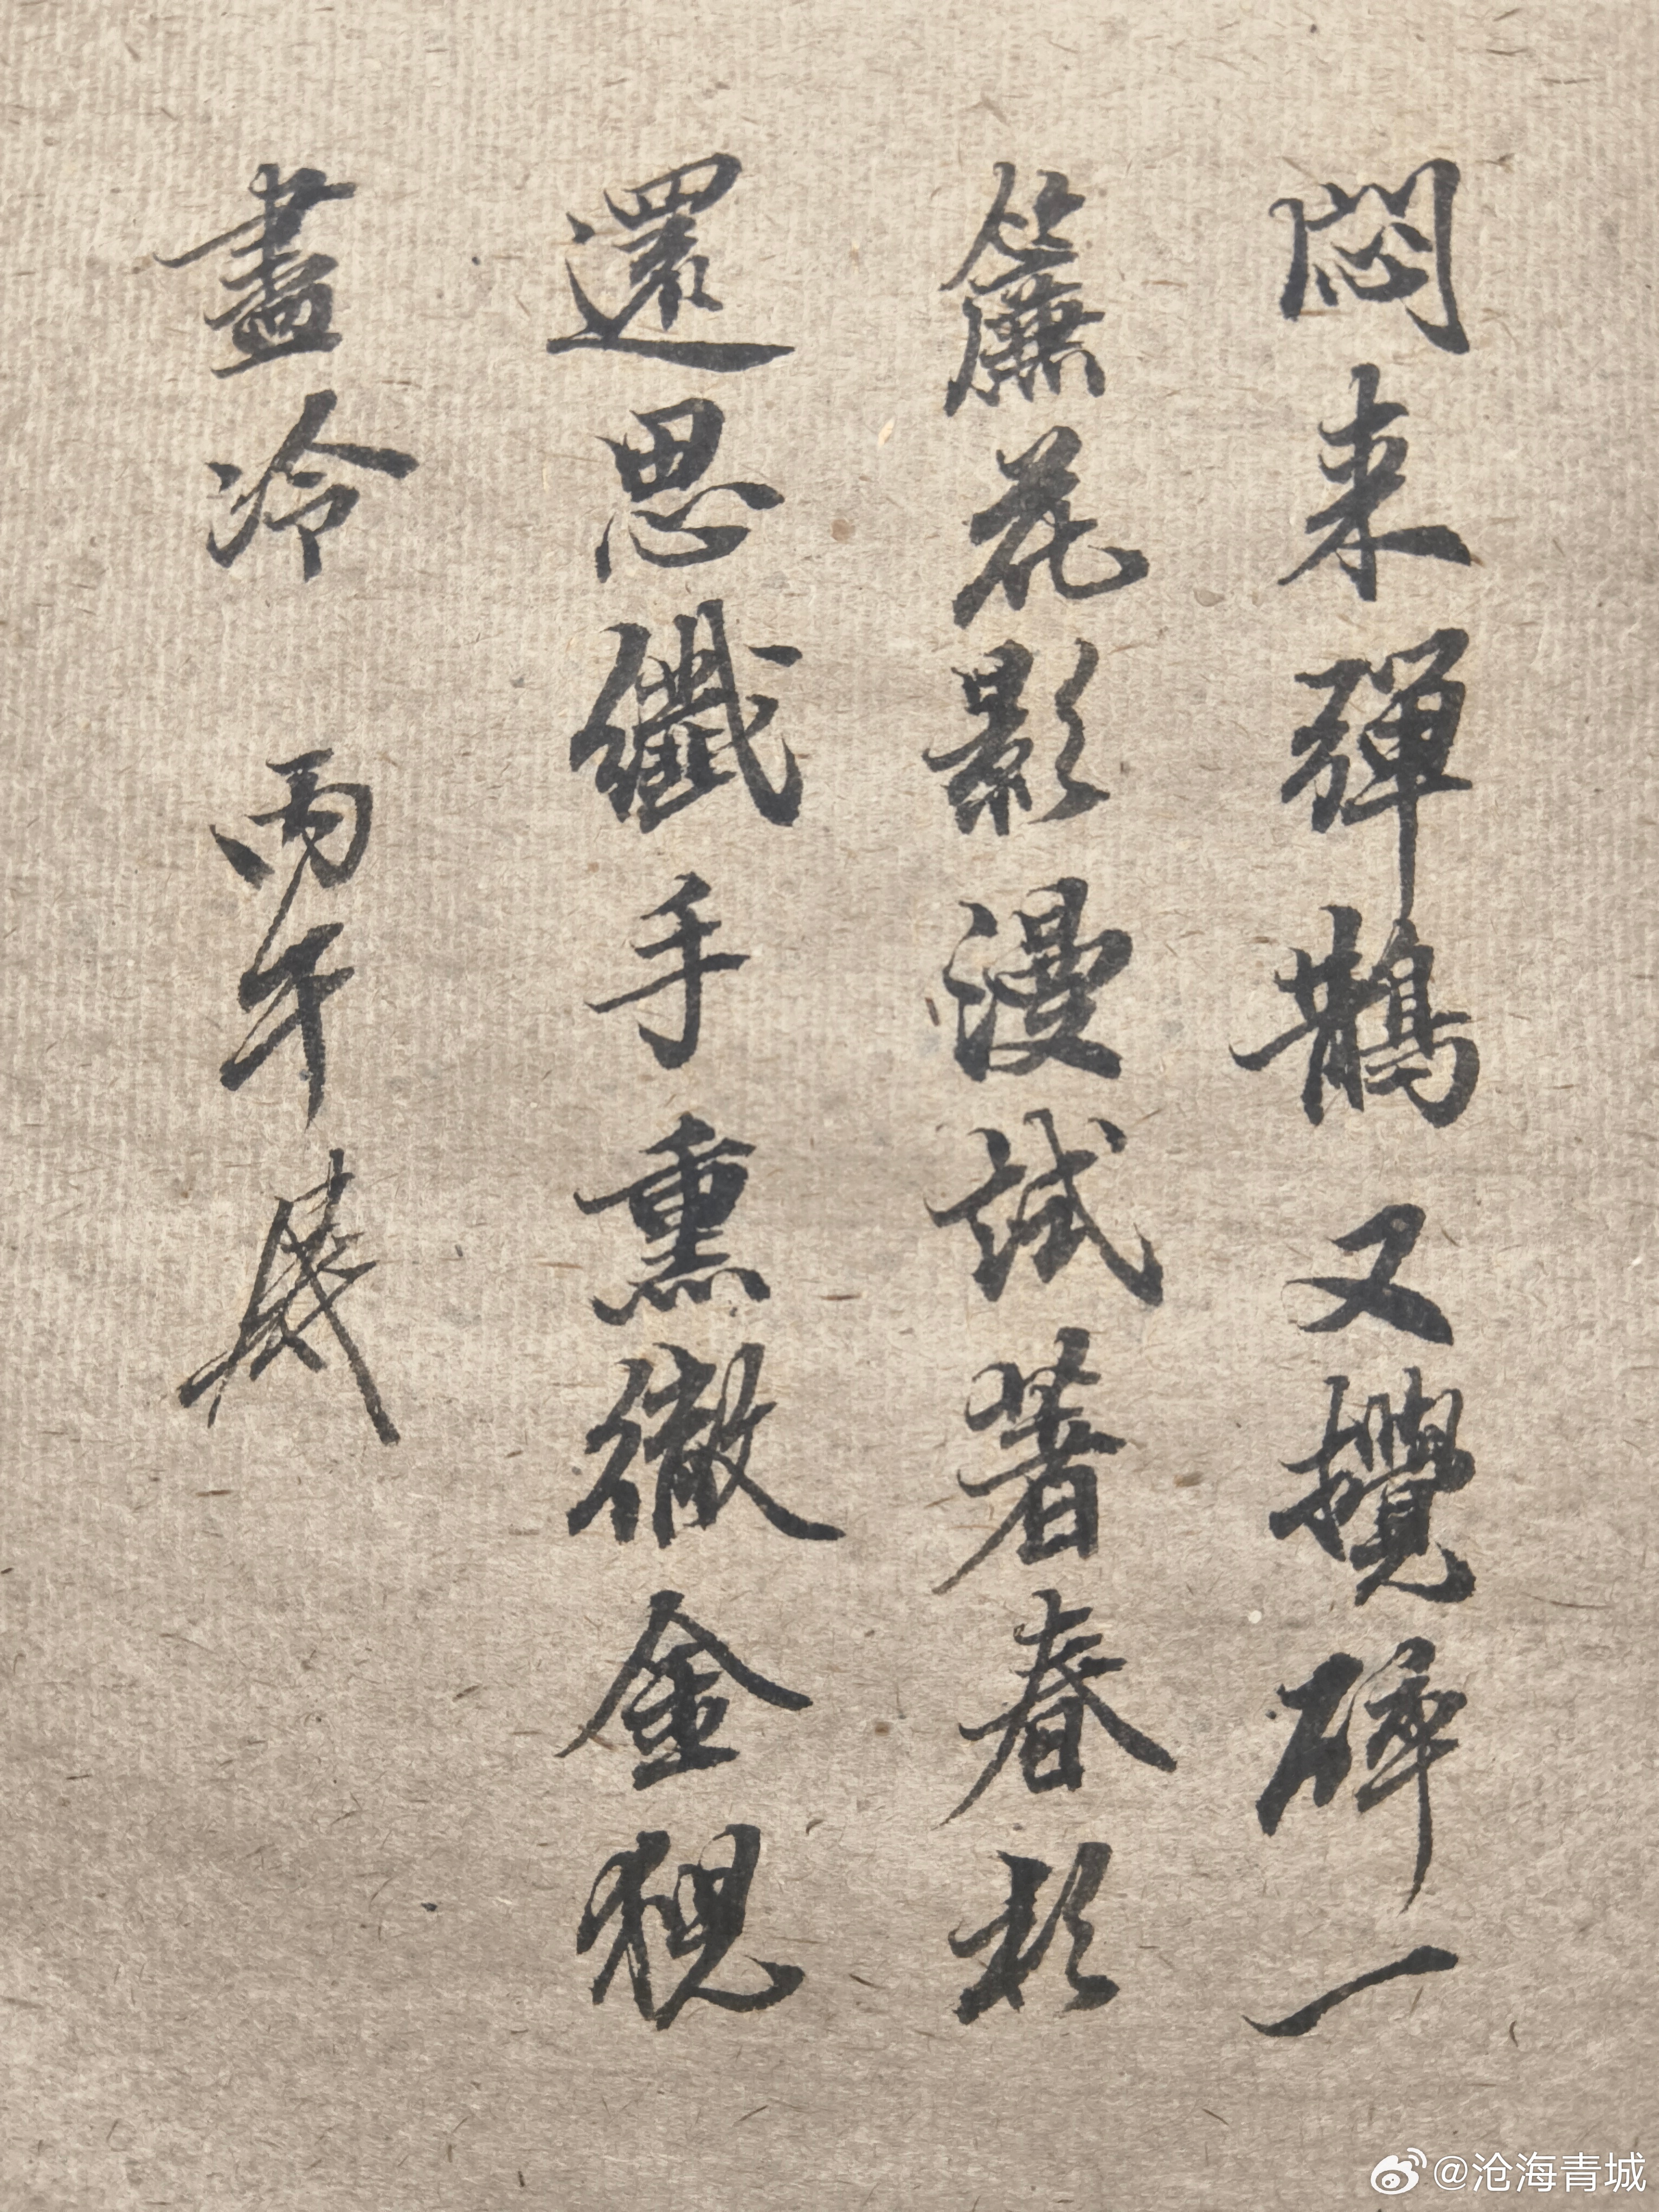 悶来彈鵲又攪碎一
簾花影漫試著春衫
還思纖手熏徹金猊
盡冷 丙午
@沧海青城